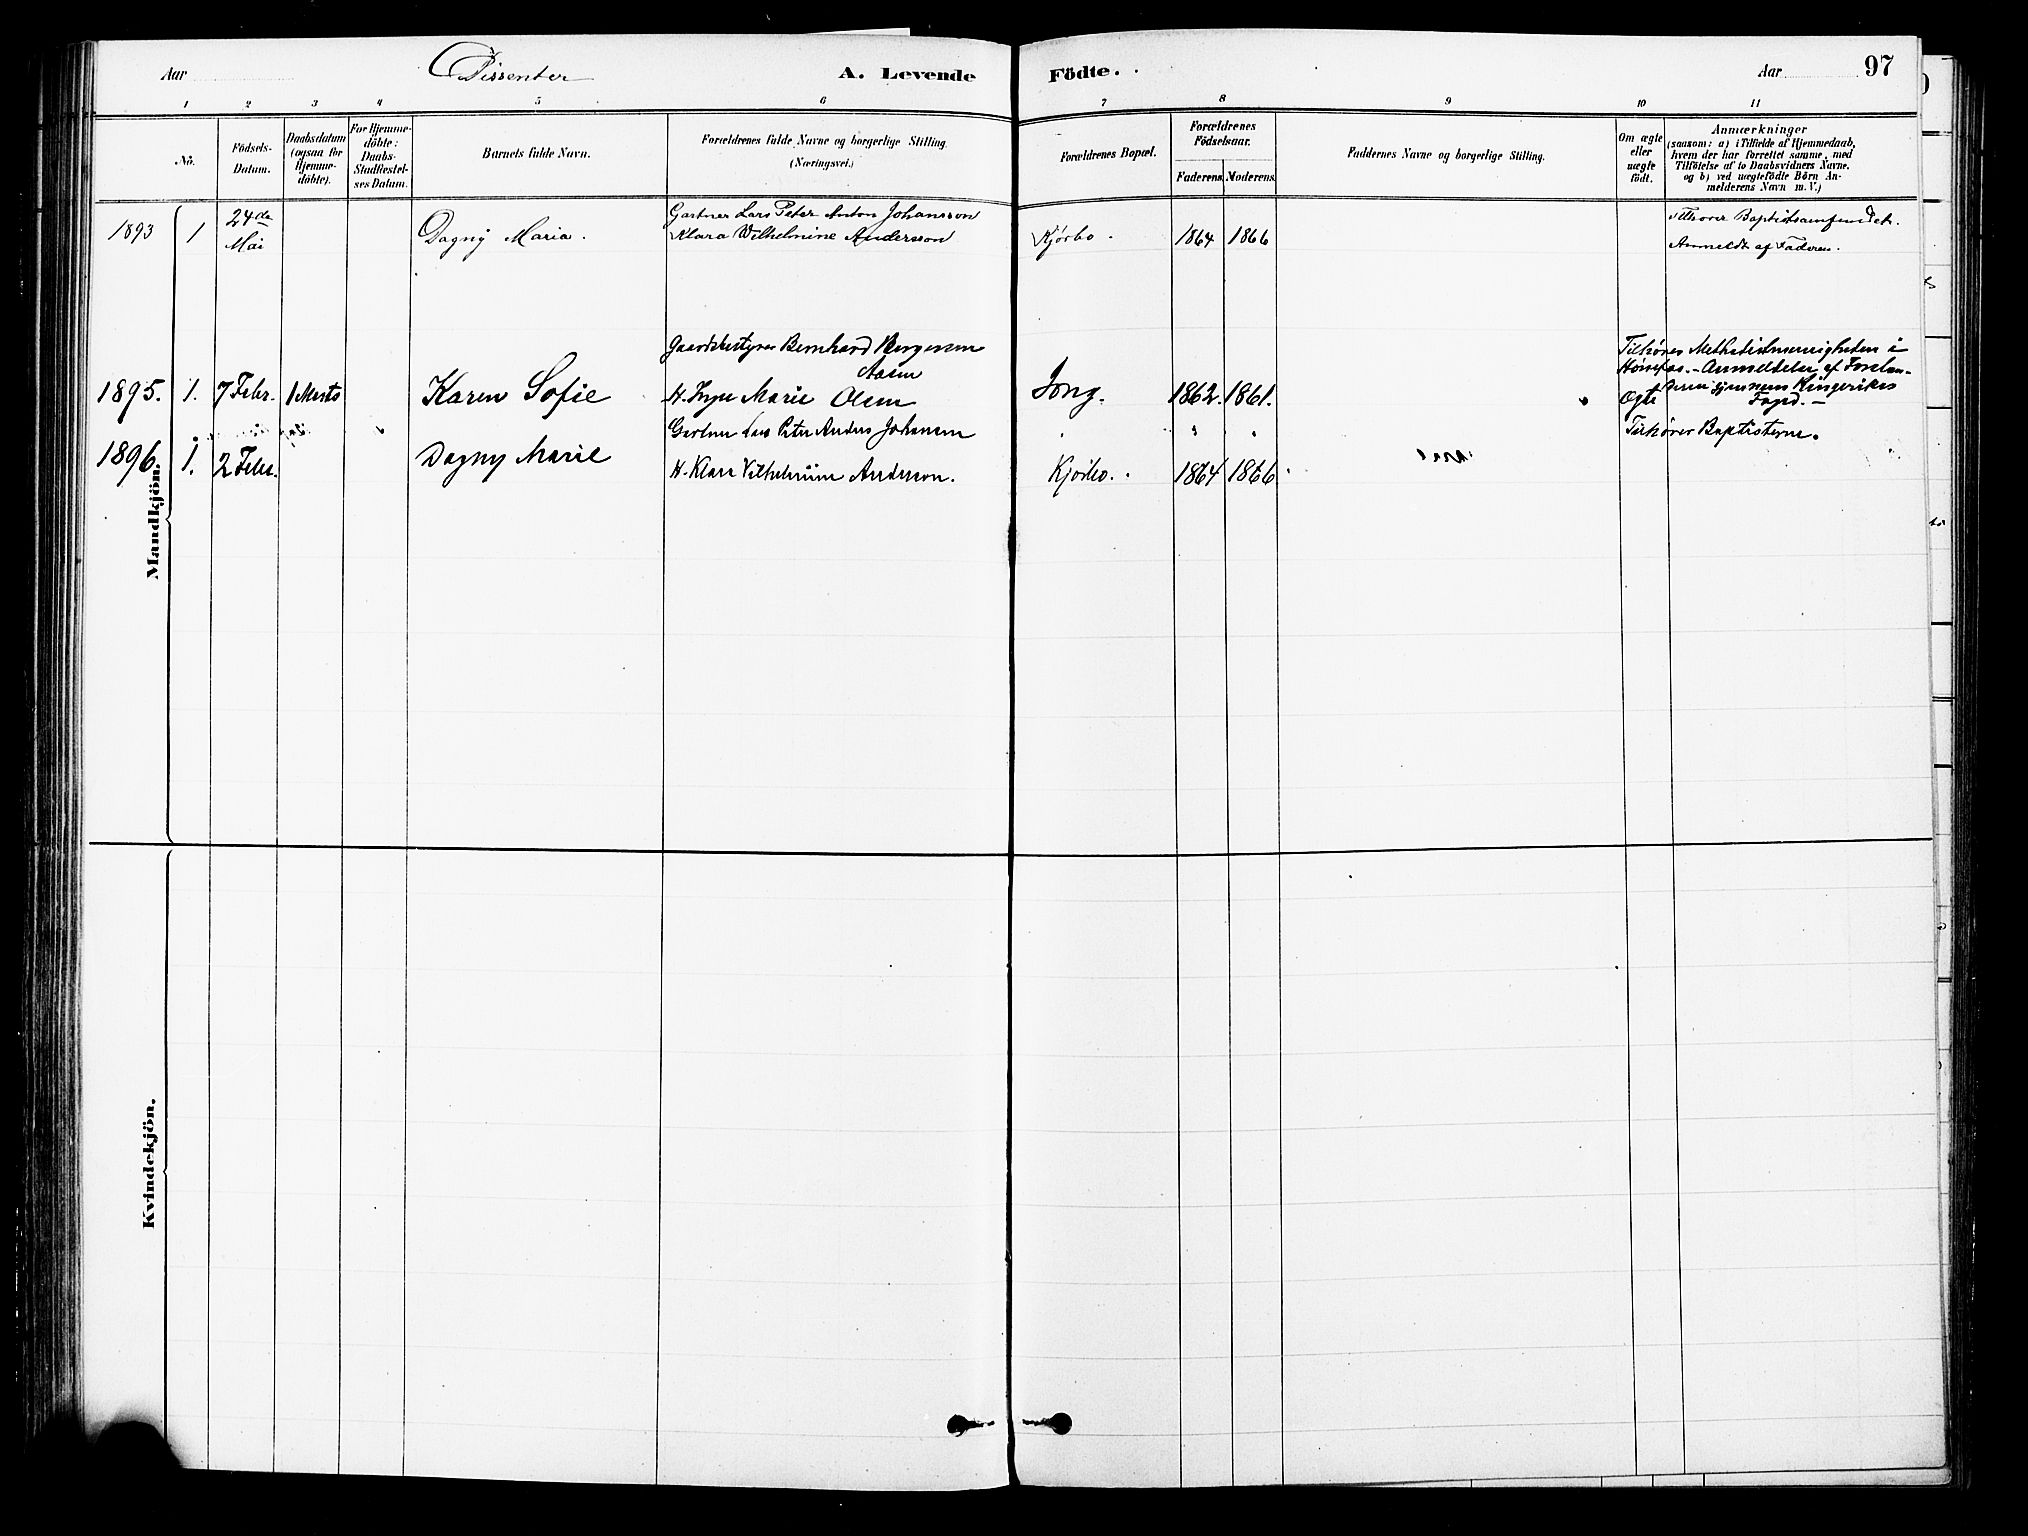 Aar Dissenter A. Levende Födte. Aar 97
1 2 3 4 5 6 7 8 9 10 11
No.
Födsels-
Datum.
Daabsdatum
(ogsaa for
Hjemme-
döbte).
For Hjemme-
döbte:
Daabs-
Stadfæstel-
ses Datum.
Barnets fulde Navn.
Forældrenes fulde Navne og borgerlige Stilling.
(Næringsvei.)
Forældrenes Bopæl.
Forældrenes
Födselsaar.
Faderens. Moderens.
Faddernes Navne og borgerlige Stilling.
Om ægte
eller
uægte
födt.
Anmærkninger
(saasom: a) i Tilfælde af Hjemmedaab,
hvem der har forrettet samme, med
Tilföielse af to Daabsvidners Navne.
og b) ved uægtefödte Börn An-
melderens Navn m. V.)
Mandkjön.
1893 1 24de
Mai
Dagny Maria.
Gartner Lars Peter Anton Johansson
Klara Vilhelmine Andersson
Kjørbo. 1864 1866
Tilhører Baptistsamfundet.
Anmeldt af Faderen.
1895. 1. 7 Febr. 1 Marts
Karen Sofie
Gaardsbestyrer Bernhard
Aasen
H. Marie Olsen
Jong. 1862. 1861.
Ægte
Tilhører Methodistmenigheden i
Hønefos. - Anmeldelse af
gjennem Ringerikes
Fogd. -
1896. 1. 2 Febr.
Dagny Marie
Gartner Lars Peter Anders Johansen
H. Klara Vilhelmine Anderson.
Kjørbo. 1864 1866
Tilhører Baptisterne.
Kvindekjön.